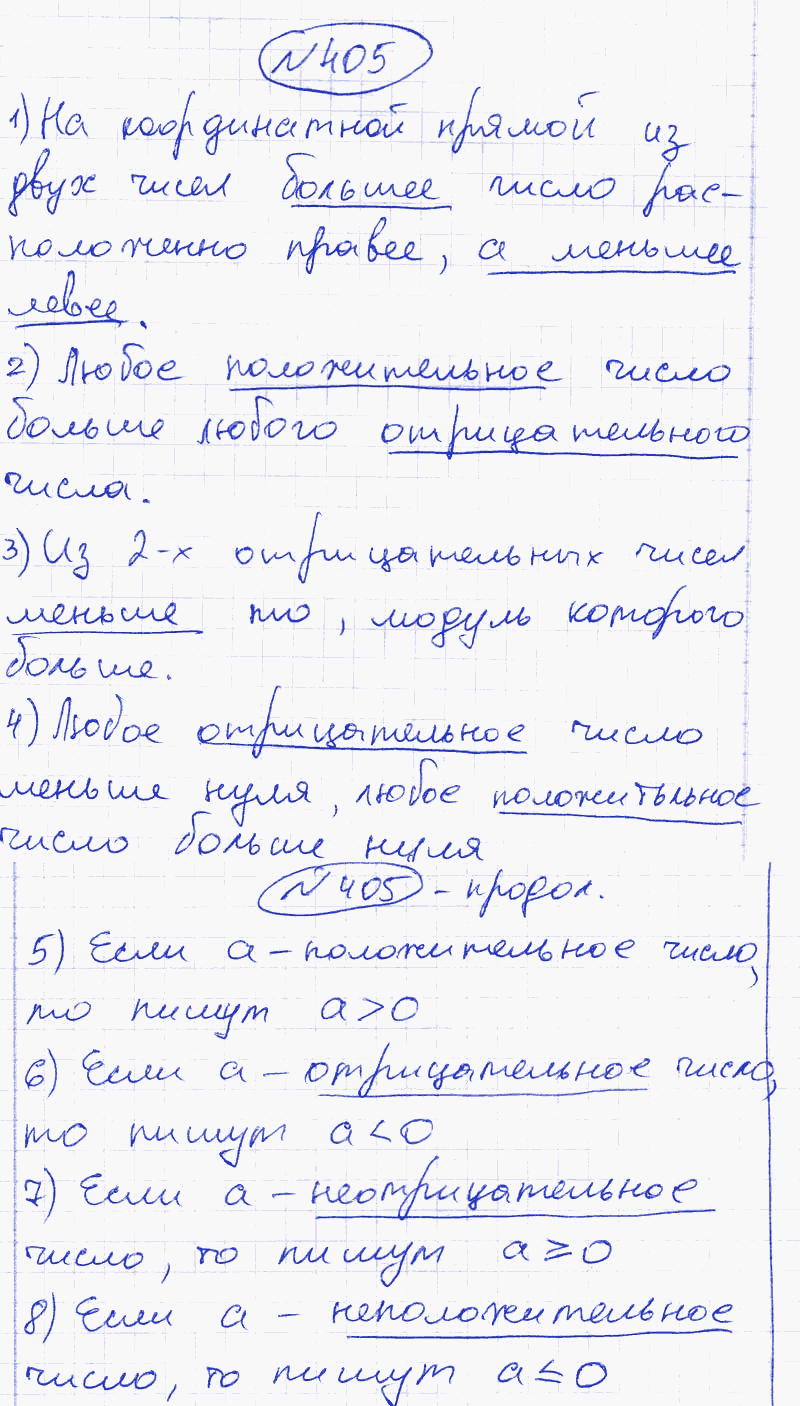 №405
1) На координатной прямой из
двух чисел большее число рас-
положенно правее, а меньшее
левее.
2) Любое положительное число
больше любого отрицательного
числа.
3) Из 2-х отрицательных чисел
меньше то, модуль которого
больше.
4) Любое отрицательное число
меньше нуля, любое положитьльное
число больше нуля
№405 - продол.
5) Если a - положительное число,
то пишут a > 0
6) Если a - отрицательное число,
то пишут a < 0
7) Если a - неотрицательное
число, то пишут a ≥ 0
8) Если a - неположительное
число, то пишут a ≤ 0